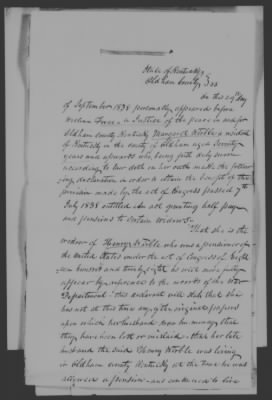 State of Kentucky
Oldham County } SS
On this 29th day
of September 1838 personally appeared before
William a Justice of the peace in and for
Oldham County Kentucky Margaret a resident
of Kentucky in the county of Oldham aged Seventy
years and upwards who being first duly sworn
according to law doth on her oath make the follow
ing declaration in order to obtain the benefit of the
provision made by the act of Congress passed 7th
July 1838 entitled An act granting half pay
and pensions to certain widows.
That she is the
widow of Henry who was a pensioner of
the United States under the act of Congress of Eight
een hundred and as will more fully
appear by reference to the records of the War
Department. This declarant will state that she
has not at this time any of the original papers
upon which her husband drew his money, that
they have been lost or mislaid that her late
husband the said Henry was living
in Oldham county Kentucky at the time he was
allowed a pension and continued to live